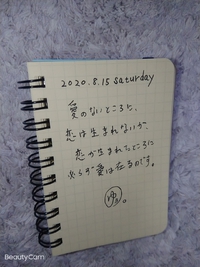 2020.8.15 saturday
愛のないところに、
恋は生まれないが、
恋が生まれたところに
必らず愛は在るのです。
ゆ。
BeautyCam